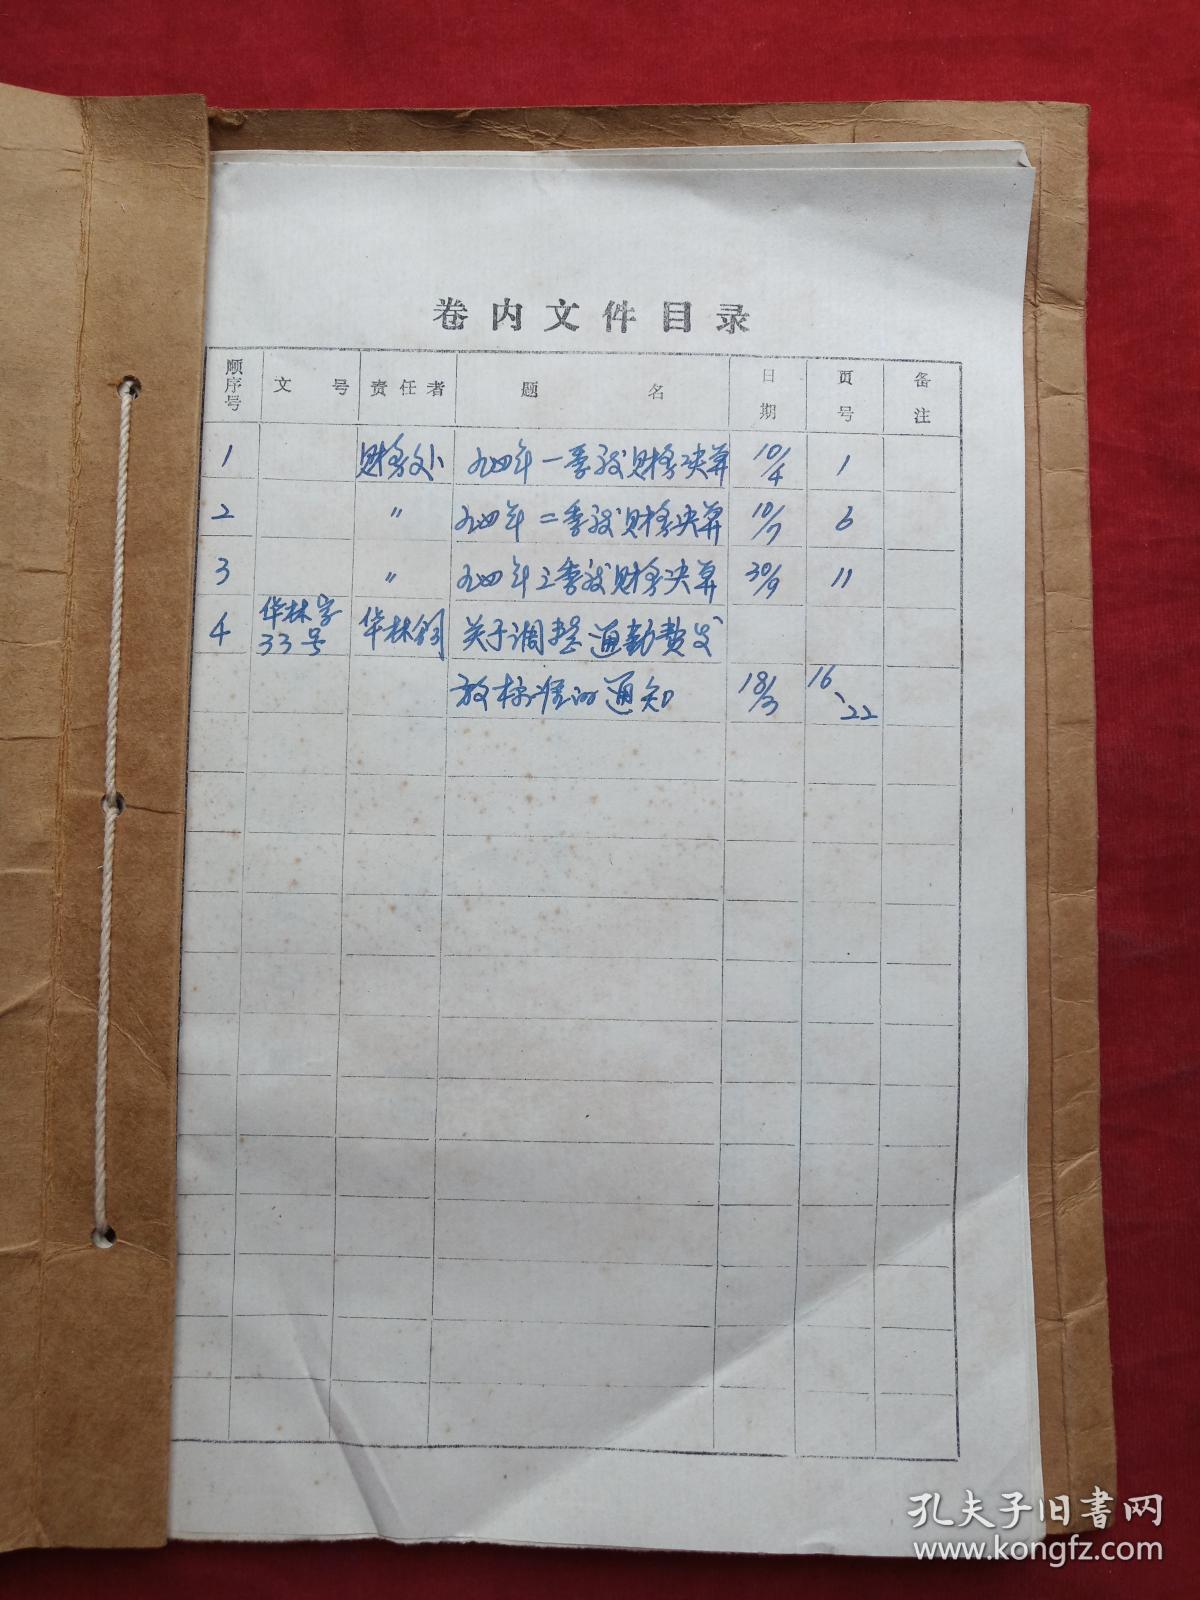 卷内文件目录
顺序号 文号 责任者 题名 日期 页号 备注
1 财务处 九四年一季度财务决算 10/4 1
2 〃 九四年二季度财务决算 10/7 6
3 〃 九四年三季度财务决算 30/9 11
4 华林字33号 华林 关于调整通勤费发
放标准的通知 18/3 16、22
孔夫子旧书网
www.kongfz.com